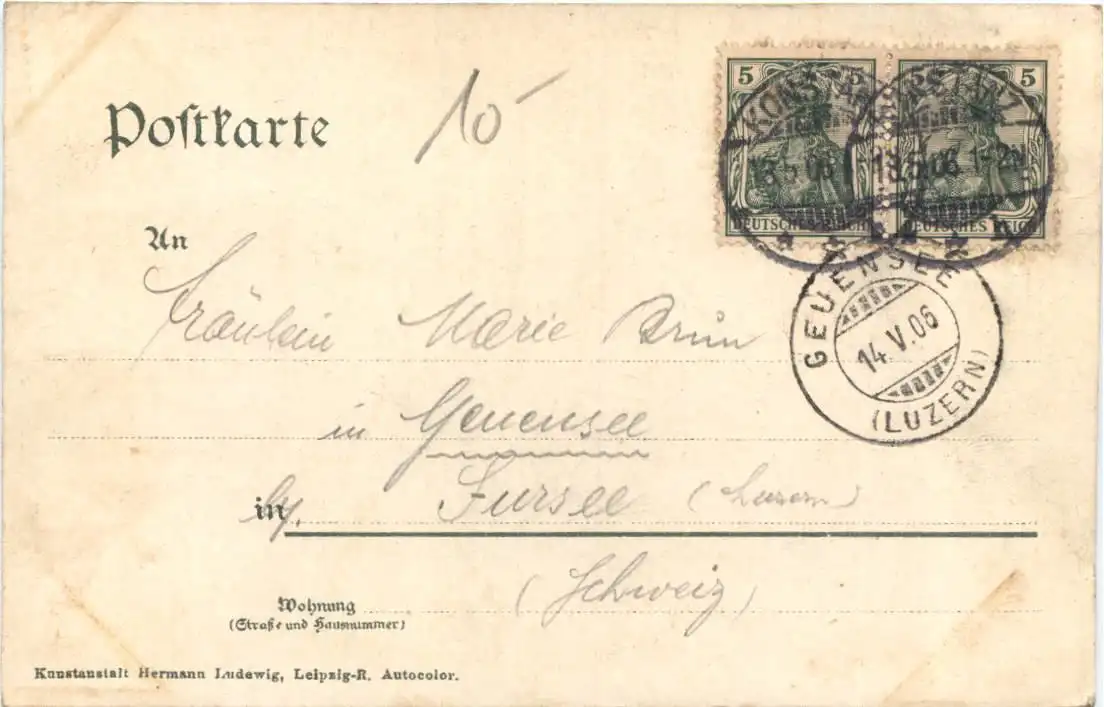 Postkarte
10
5 5 5
DEUTSCHES REICH DEUTSCHES REICH
KONSTANZ
13.5.06
KONSTANZ
13.5.06.1-2N
GEUENSEE
14.V.06
(LUZERN)
An
Fräulein Marie Brun
in Geuensee
in by. Sursee (Luzern)
(Schweiz)
Wohnung
(Straße und Hausnummer)
Kunstanstalt Hermann Ludewig, Leipzig-R. Autocolor.